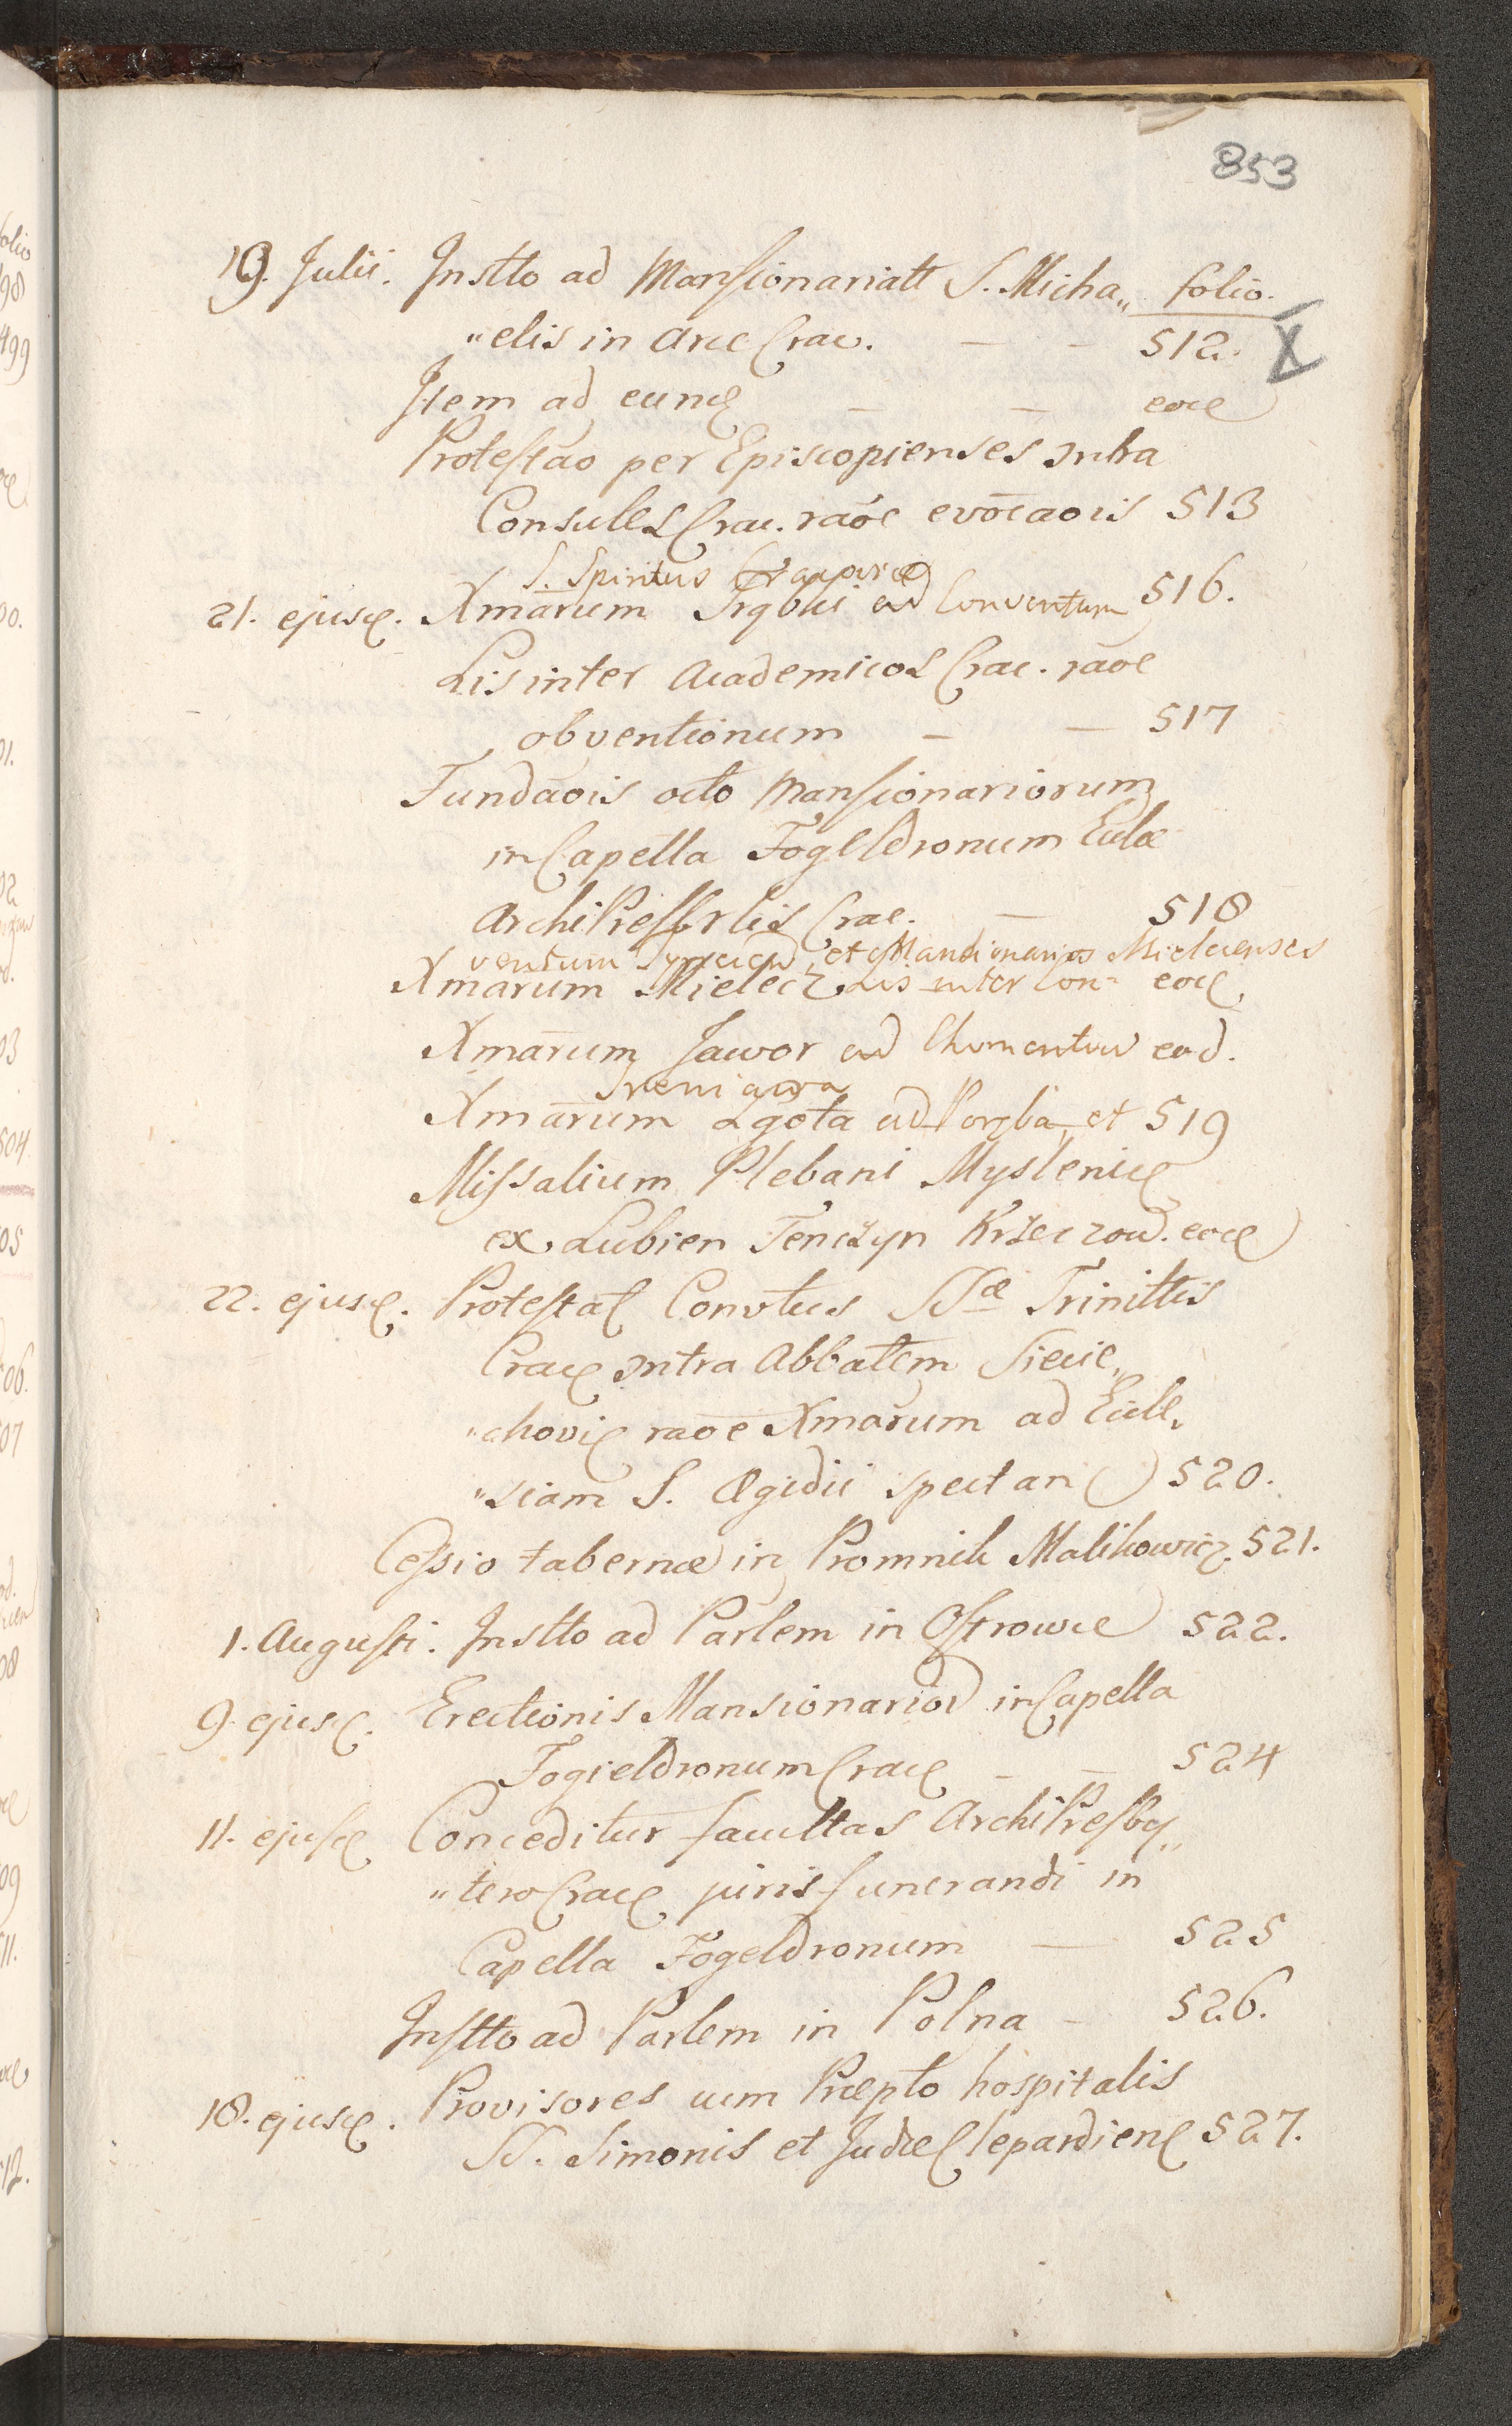 853
19. Julii. Instto ad Mansionariatt S. Micha„ folio.
„elis in arce Crac. — — 512. X
Item ad eunđ — — eođ
Protestao per Episcopienses ɔntra
Consules Crac. raōe evōcaōis 513
S. Spiritus
21. ejusđ. Xmārum ad Conventum 516.
Lis inter Academicos Crac. raōe
obventionum — — 517
Fundaōis octo Mansionariorum
in Capella Fogeldronum Eccläe
ArchiPresbrlis Crac. — 518
ventum et Mansionarios Mielecenses
Xmārum Mielecz Lis inter Con= eođ
Xmārum Jawor ad eod.
Xmārum Lgota ad Poręba et 519
Missalium Plebani Myslenic
ex Lubien Tenczyn Krzeczow. eođ
22. ejusđ. Protestał Convtus SSæ Trinittis
Crac ɔntra Abbatem Siecie„
„chovi raōe Xmārum ad Eccle„
„siam S. Ægidii spectan 520.
Cessio tabernæ in Promnik Malikowicz 521.
1. Augusti. Instto ad Parlem in Ostrowce 522.
9. ejusđ. Erectionis Mansionarior in Capella
Fogieldronum Crac — — 524
11. ejusđ Conceditur facultas ArchiPresby„
„tero Crac juris funerandi in
Capella Fogeldronum — 525
Instto ad Parlem in Polna — 526.
18. ejusđ. Provisores cum Præpto hospitalis
SS. Simonis et Judæ Clepardien 527.